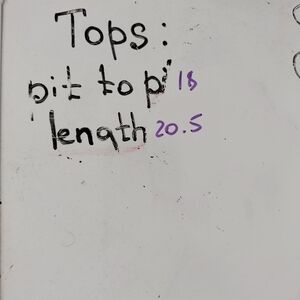 Tops:
pit to pi 18
length 20.5